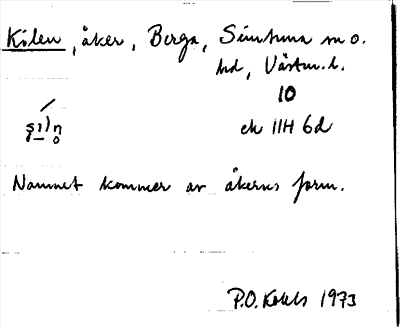 Kilen, åker, Berga, Simtuna sn o.
hd, Västm. l.
10
ek 11H 6d
Namnet kommer av åkerns form.
P.O. 1973